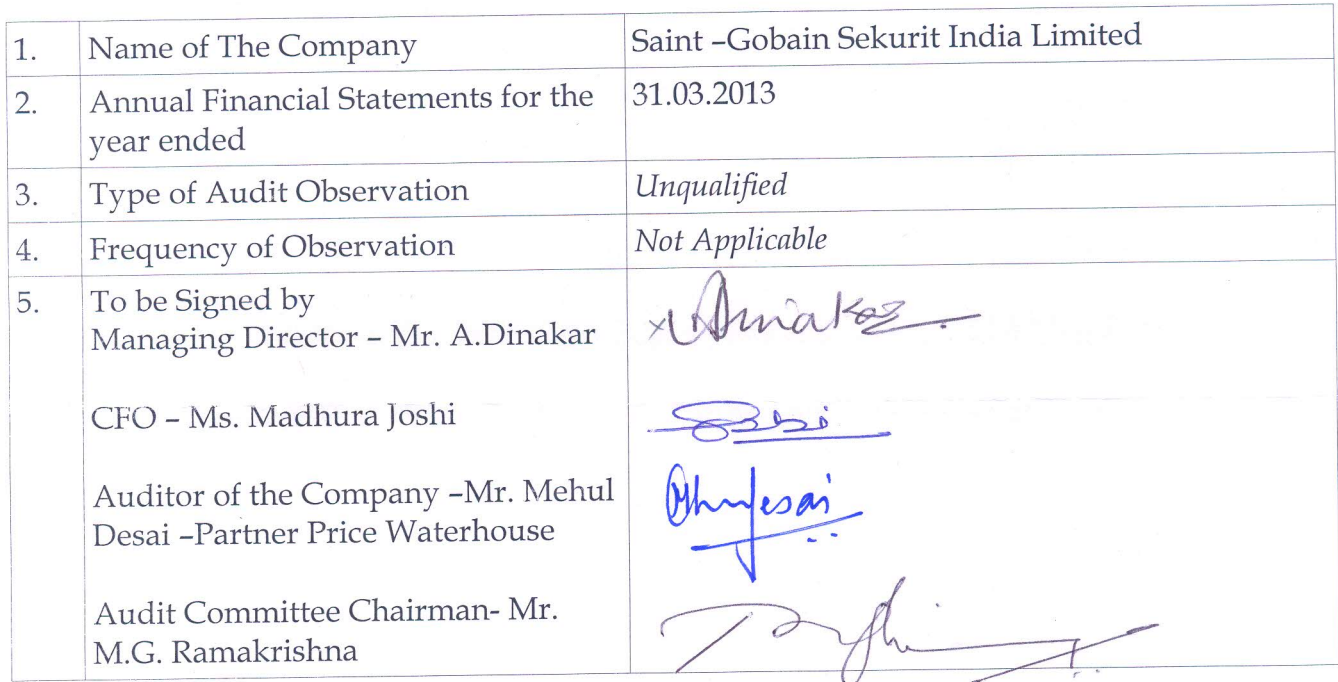 1. Name of The Company Saint –Gobain Sekurit India Limited
2. Annual Financial Statements for the 31.03.2013
year ended
3. Type of Audit Observation Unqualified
4. Frequency of Observation Not Applicable
5. To be Signed by
Managing Director – Mr. A.Dinakar
CFO – Ms. Madhura Joshi
Auditor of the Company –Mr. Mehul
Desai –Partner Price Waterhouse
Audit Committee Chairman- Mr.
M.G. Ramakrishna